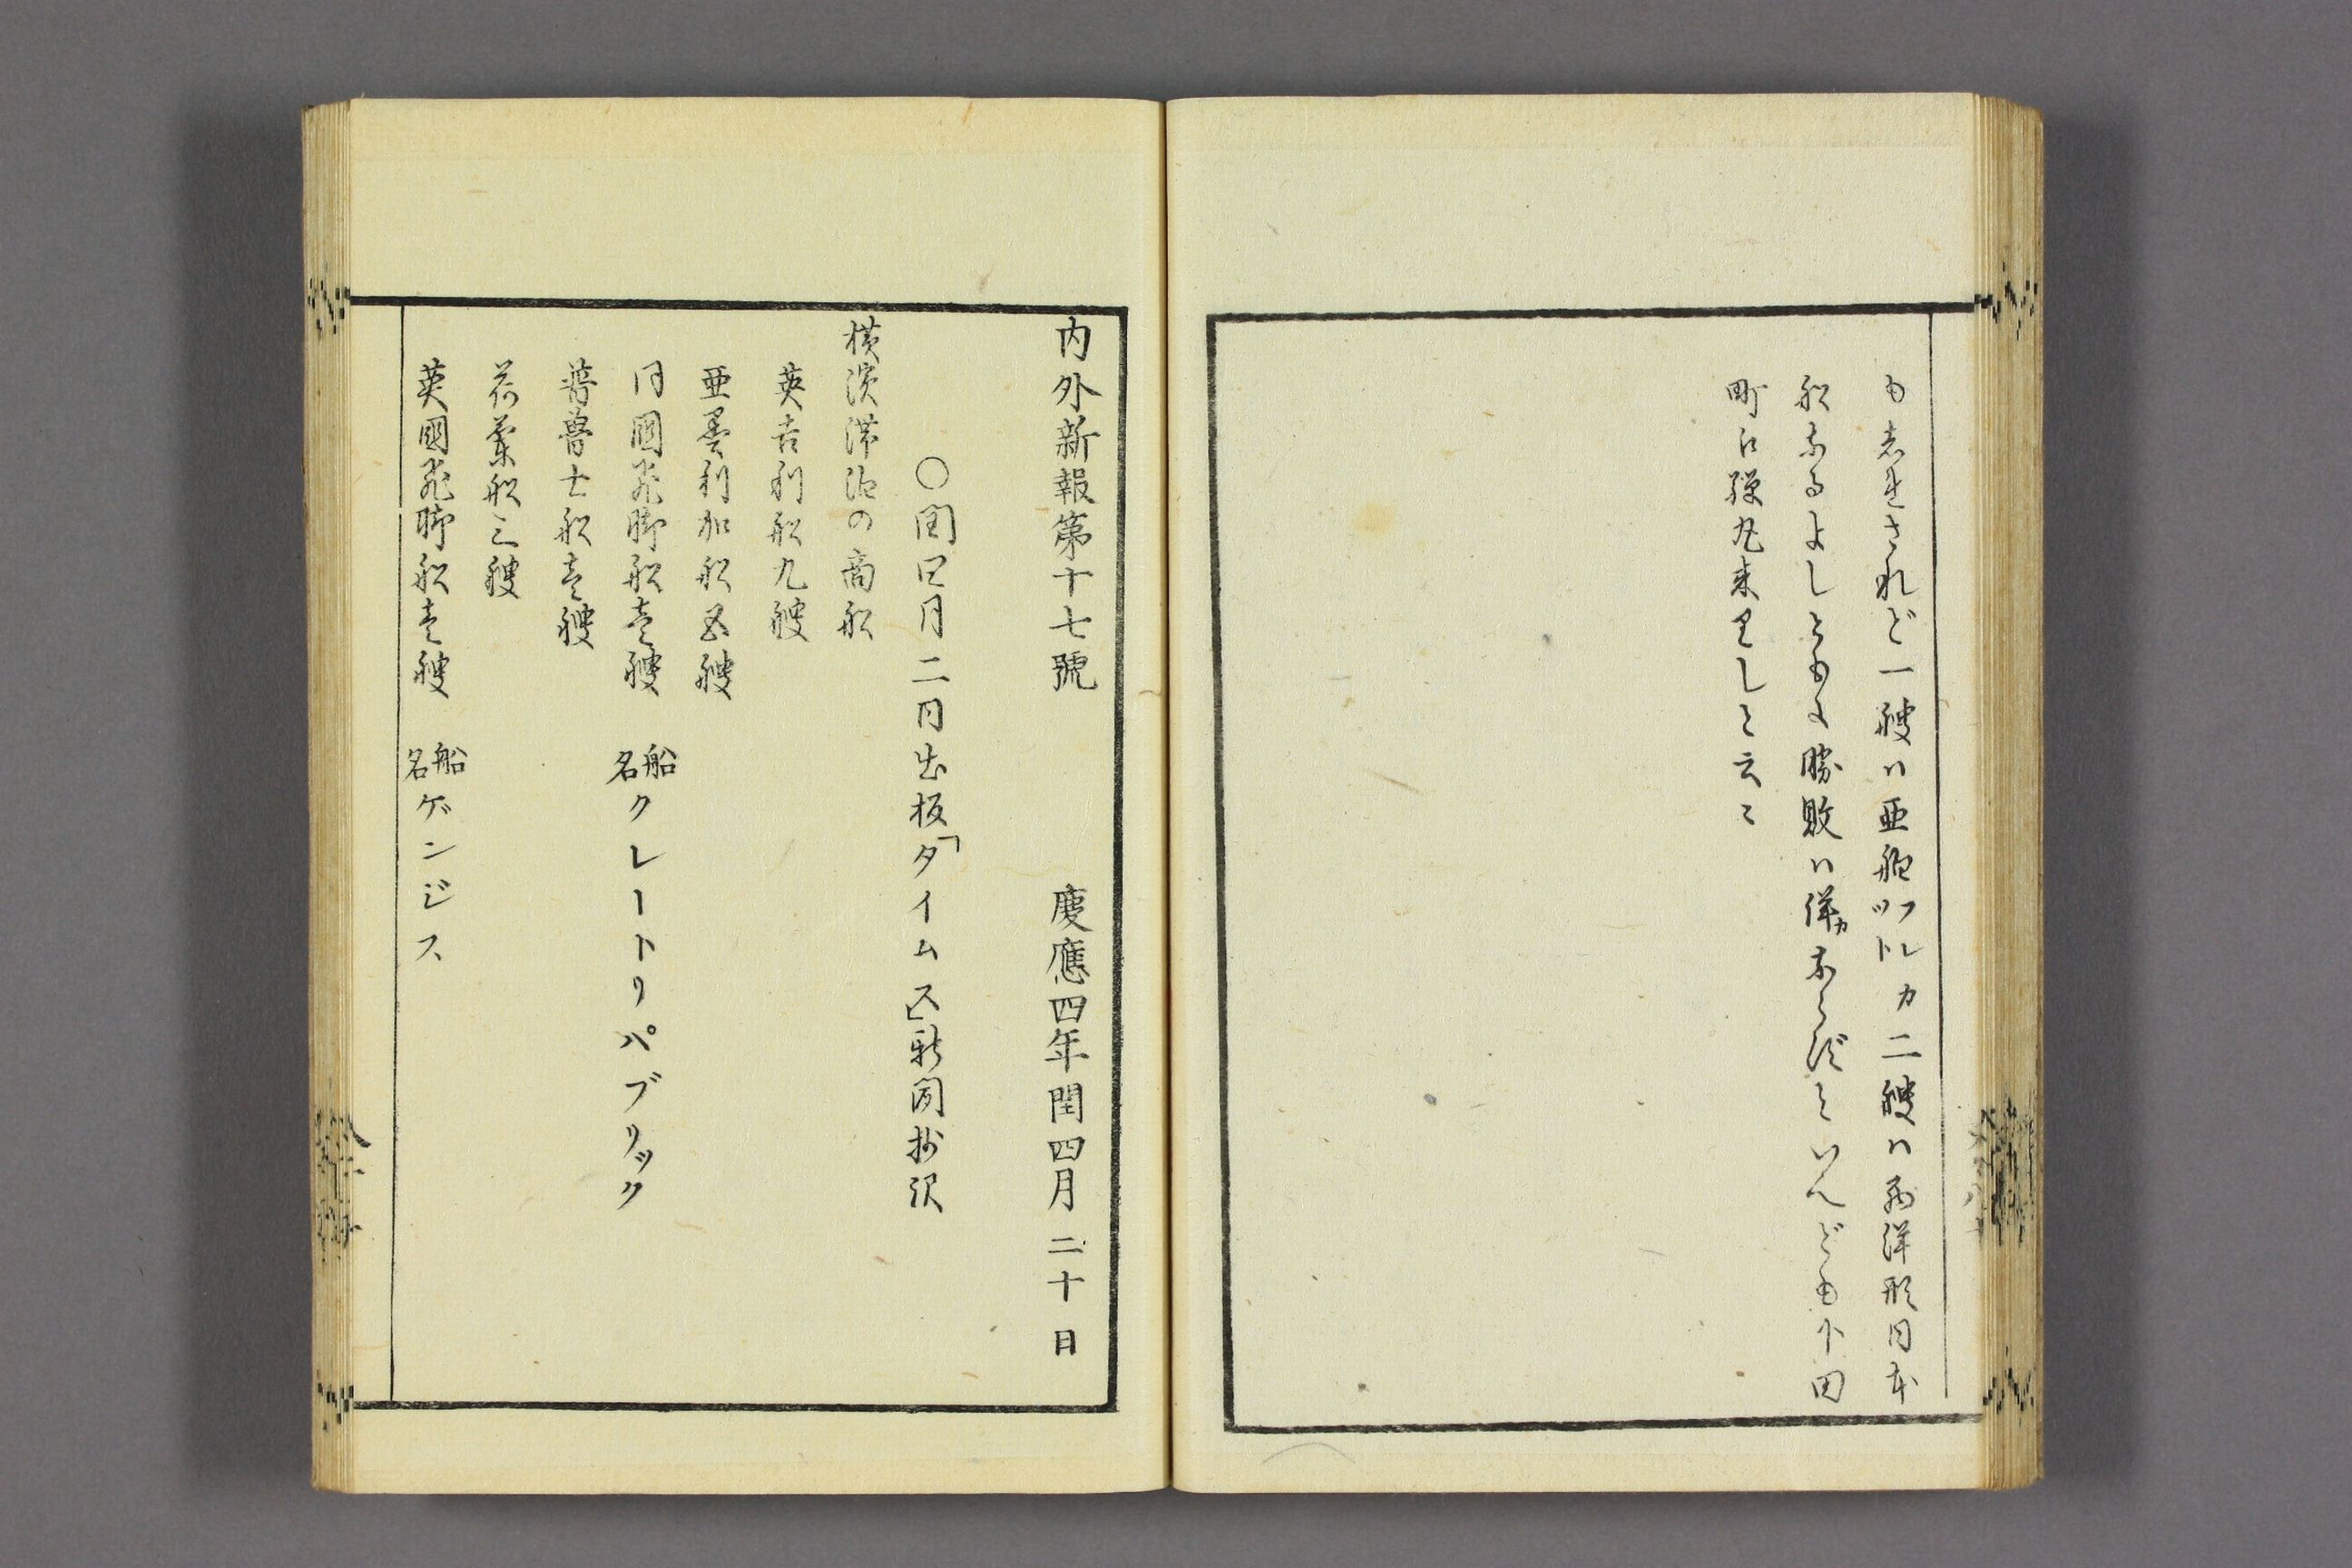 もしれずされど一艘ハ亜船フレツトカ二艘ハ西洋形日本
船なるよしともに勝敗ハ詳カならずといへども下田
町江弾丸来りしと云々
内外新報第十七號 慶應四年閏四月二十日
〇閏四月二日出板「タイムス」新聞抄訳
横濱滞泊の商船
英吉利船九艘
亜墨利加船五艘
同國飛脚船壱艘 船名クレートリパブリック
普魯士船壱艘
荷蘭船三艘
英國飛脚船壱艘 船名ゲンジス